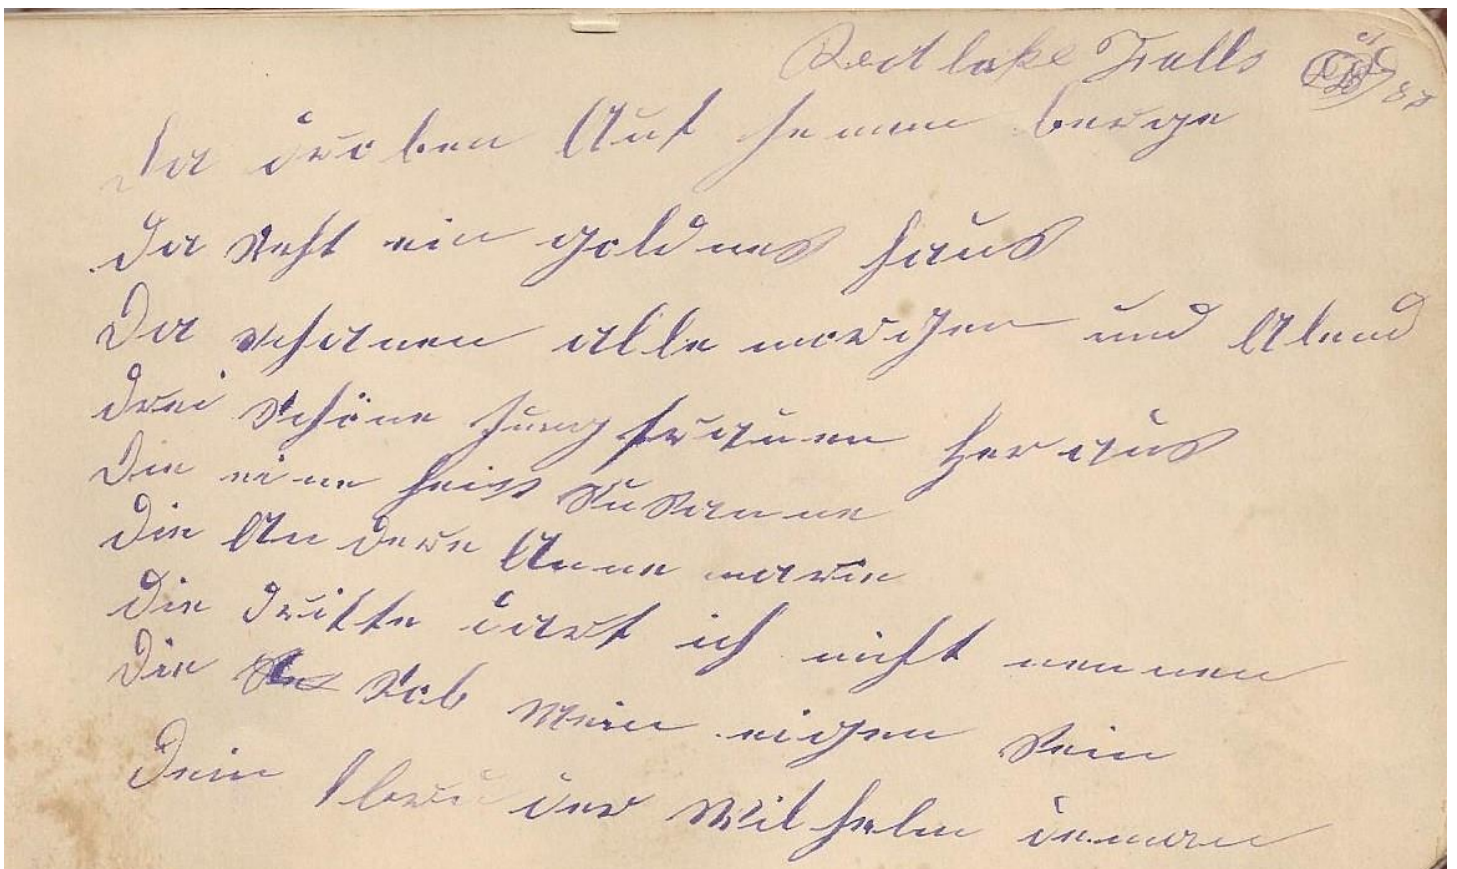 Red lake Falls 87
Da droben Auf jennen berge
da steht ein goldnes haus
Da schauen alle morgen und Abend
drei schöne Jungfrauen heraus
Die eine heist Susanne
die An dere Anne marie
die dritte darf ich nicht nennen
Die sol mein eigen sein
Dein bruder Wilhelm